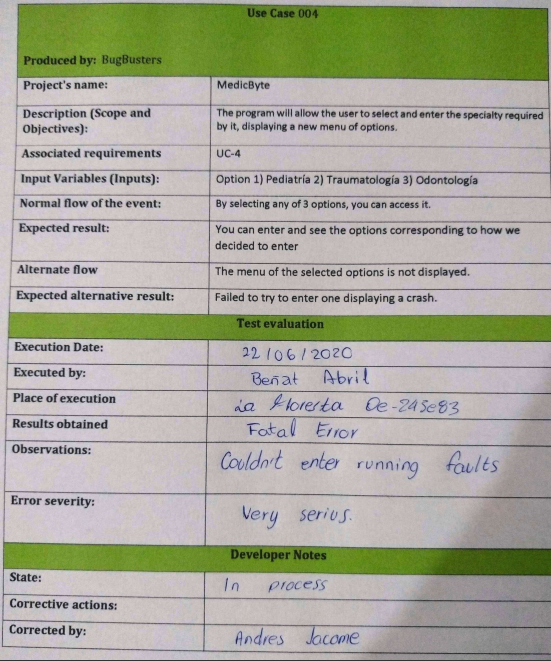 Use Case 004
Produced by: BugBusters
Project's name: MedicByte
Description (Scope and Objectives): The program will allow the user to select and enter the specialty required
by it, displaying a new menu of options.
Associated requirements UC-4
Input Variables (Inputs): Option 1) Pediatría 2) Traumatología 3) Odontología
Normal flow of the event: By selecting any of 3 options, you can access it.
Expected result: You can enter and see the options corresponding to how we
decided to enter
Alternate flow The menu of the selected options is not displayed.
Expected alternative result: Failed to try to enter one displaying a crash.
Test evaluation
Execution Date: 22/06/2020
Executed by: Beñat Abril
Place of execution La Floresta Oe-24Se83
Results obtained Fatal Error
Observations: Couldn't enter running faults
Error severity: Very serius.
Developer Notes
State: In process
Corrective actions:
Corrected by: Andres Jacome